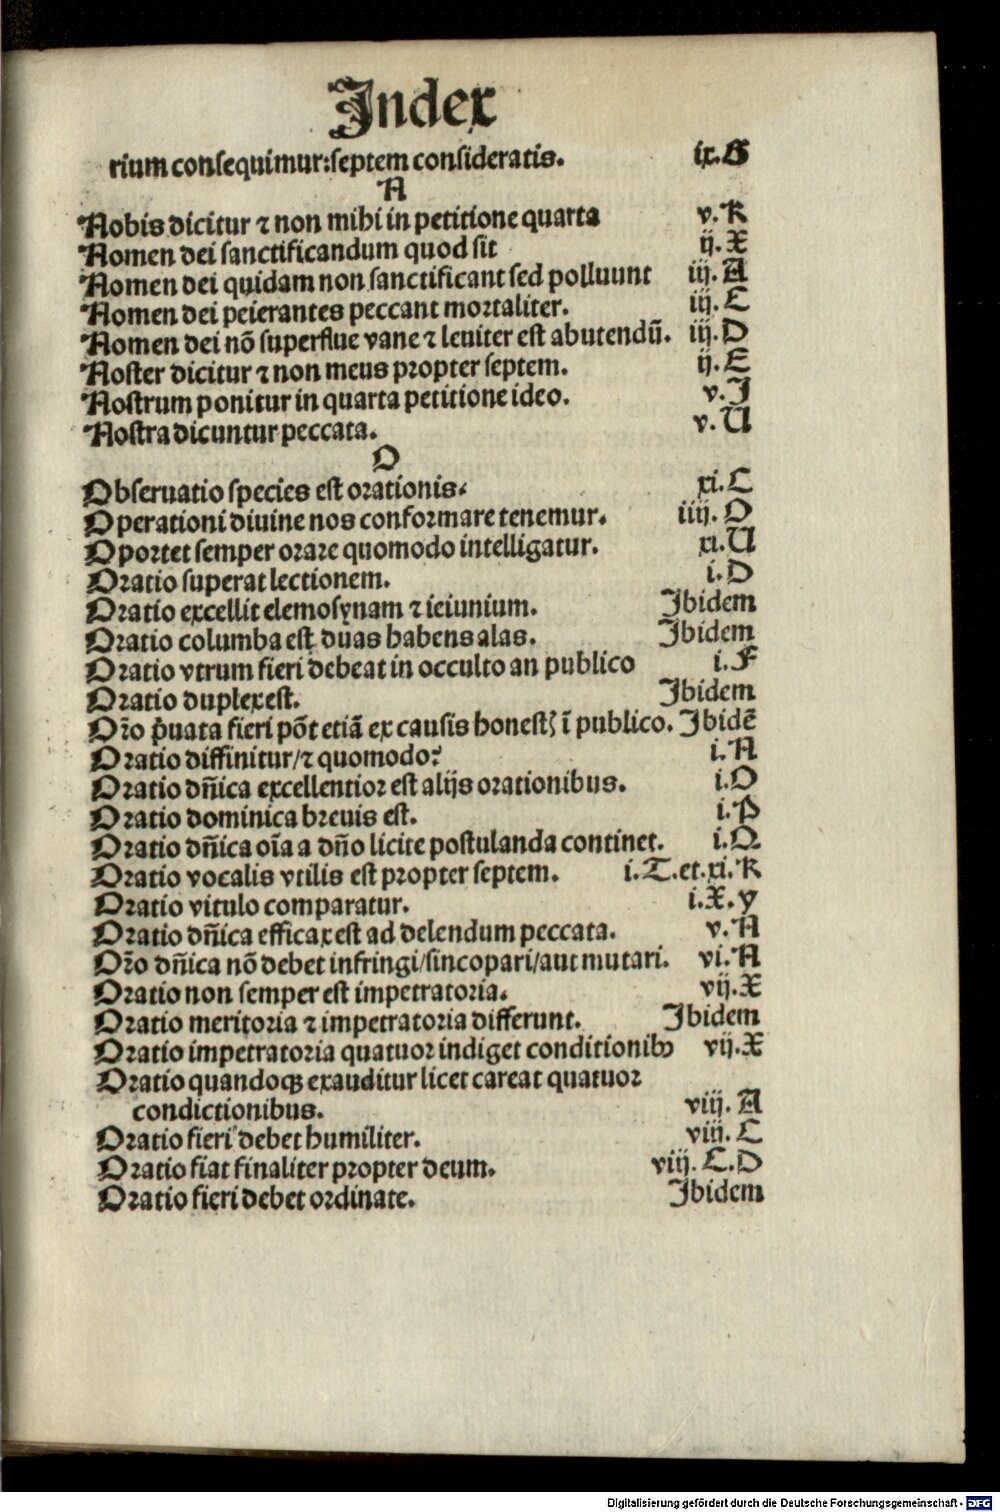 Index
rium consequimur: septem consideratis. ix. G
N
Nobis dicitur ⁊ non mihi in petitione quarta v. K
Nomen dei sanctificandum quod sit ij. X
Nomen dei quidam non sanctificant sed polluunt iij. A
Nomen dei peierantes peccant mortaliter. iij. C
Nomen dei nō superflue vane ⁊ leuiter est abutendū. iij. D
Noster dicitur ⁊ non meus propter septem. ij. E
Nostrum ponitur in quarta petitione ideo. v. I
Nostra dicuntur peccata. v. U
O
Obseruatio species est orationis. xi. C
Operationi diuine nos conformare tenemur. iiij. O
Oportet semper orare quomodo intelligatur. xi. U
Oratio superat lectionem. i. D
Oratio excellit elemosynam ⁊ ieiunium. Ibidem
Oratio columba est duas habens alas. Ibidem
Oratio vtrum fieri debeat in occulto an publico i. F
Oratio duplex est. Ibidem
Or̄o p̄uata fieri pōt etiā ex causis honestꝭ ī publico. Ibidē
Oratio diffinitur/⁊ quomodo? i. N
Oratio dn̄ica excellentior est alijs orationibus. i. O
Oratio dominica breuis est. i. P
Oratio dn̄ica oīa a dn̄o licite postulanda continet. i. Q
Oratio vocalis vtilis est propter septem. i. T. et. xi. K
Oratio vitulo comparatur. i. X. y
Oratio dn̄ica efficax est ad delendum peccata. v. N
Or̄o dn̄ica nō debet infringi/sincopari/aut mutari. vi. N
Oratio non semper est impetratoria. vij. X
Oratio meritoria ⁊ impetratoria differunt. Ibidem
Oratio impetratoria quatuor indiget conditionibꝰ vij. X
Oratio quandoqꝫ exauditur licet careat quatuor
condictionibus. viij. A
Oratio fieri debet humiliter. viij. C
Oratio fiat finaliter propter deum. viij. C. D
Oratio fieri debet ordinate. Ibidem
Digitalisierung gefördert durch die Deutsche Forschungsgemeinschaft - DFG